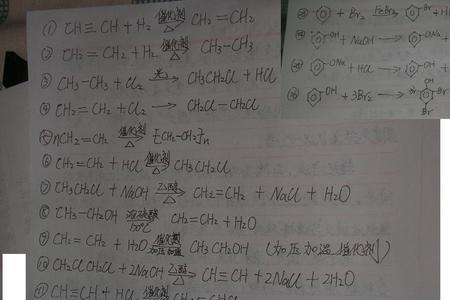 (1) CH≡CH + H2 催化剂 △ CH2=CH2
(2) CH2=CH2 + H2 催化剂 △ CH3-CH3
(3) CH3-CH3 + Cl2 光 → CH3CH2Cl + HCl
(4) CH2=CH2 + Cl2 → CH2Cl-CH2Cl
(5) nCH2=CH2 催化剂 △ [CH2-CH2]n
(6) CH2=CH2 + HCl 催化剂 △ CH3CH2Cl
(7) CH3CH2Cl + NaOH 乙醇 △ CH2=CH2 + NaCl + H2O
(8) CH3-CH2OH 浓硫酸 170℃ CH2=CH2 + H2O
(9) CH2=CH2 + H2O 催化剂 加压加温 CH3CH2OH (加压加温催化剂)
(10) CH2ClCH2Cl + 2NaOH 乙醇 △ CH≡CH + 2NaCl + 2H2O
(11) CH≡CH + HCl 催化剂
+ Br2 FeBr3 Br
OH + NaOH → ONa
ONa + HCl → OH
OH + 3Br2 → OH Br Br Br